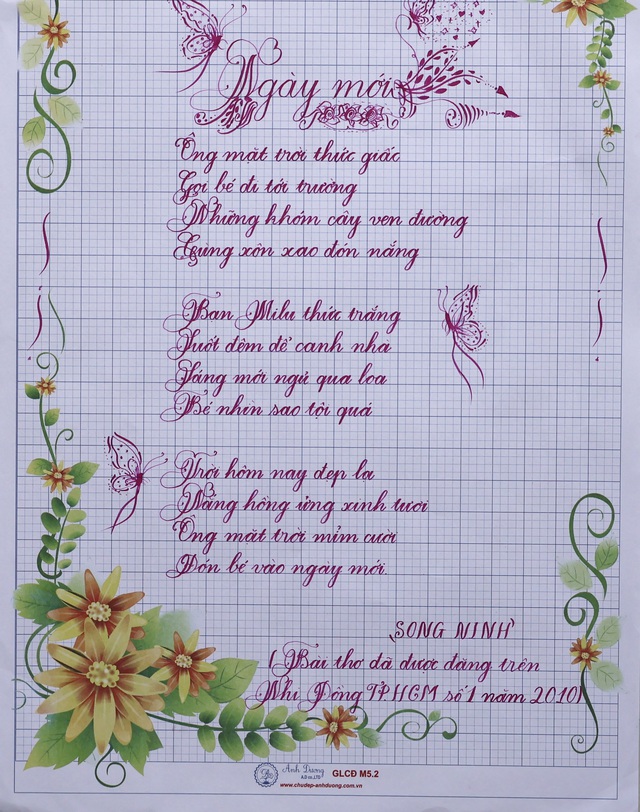 Ngày mới
Ông mặt trời thức giấc
Gọi bé đi tới trường
Những khóm cây ven đường
Cùng xôn xao đón nắng
Bạn Milu thức trắng
Suốt đêm để canh nhà
Sáng mới ngủ qua loa
Bé nhìn sao tội quá
Trời hôm nay đẹp lạ
Nắng hồng ửng xinh tươi
Ông mặt trời mỉm cười
Đón bé vào ngày mới.
SONG NINH
( Bài thơ đã được đăng trên
Nhi Đồng TP.HCM số 1 năm 2010)
Ánh Dương
GLCĐ M5.2
www.chudep-anhduong.com.vn